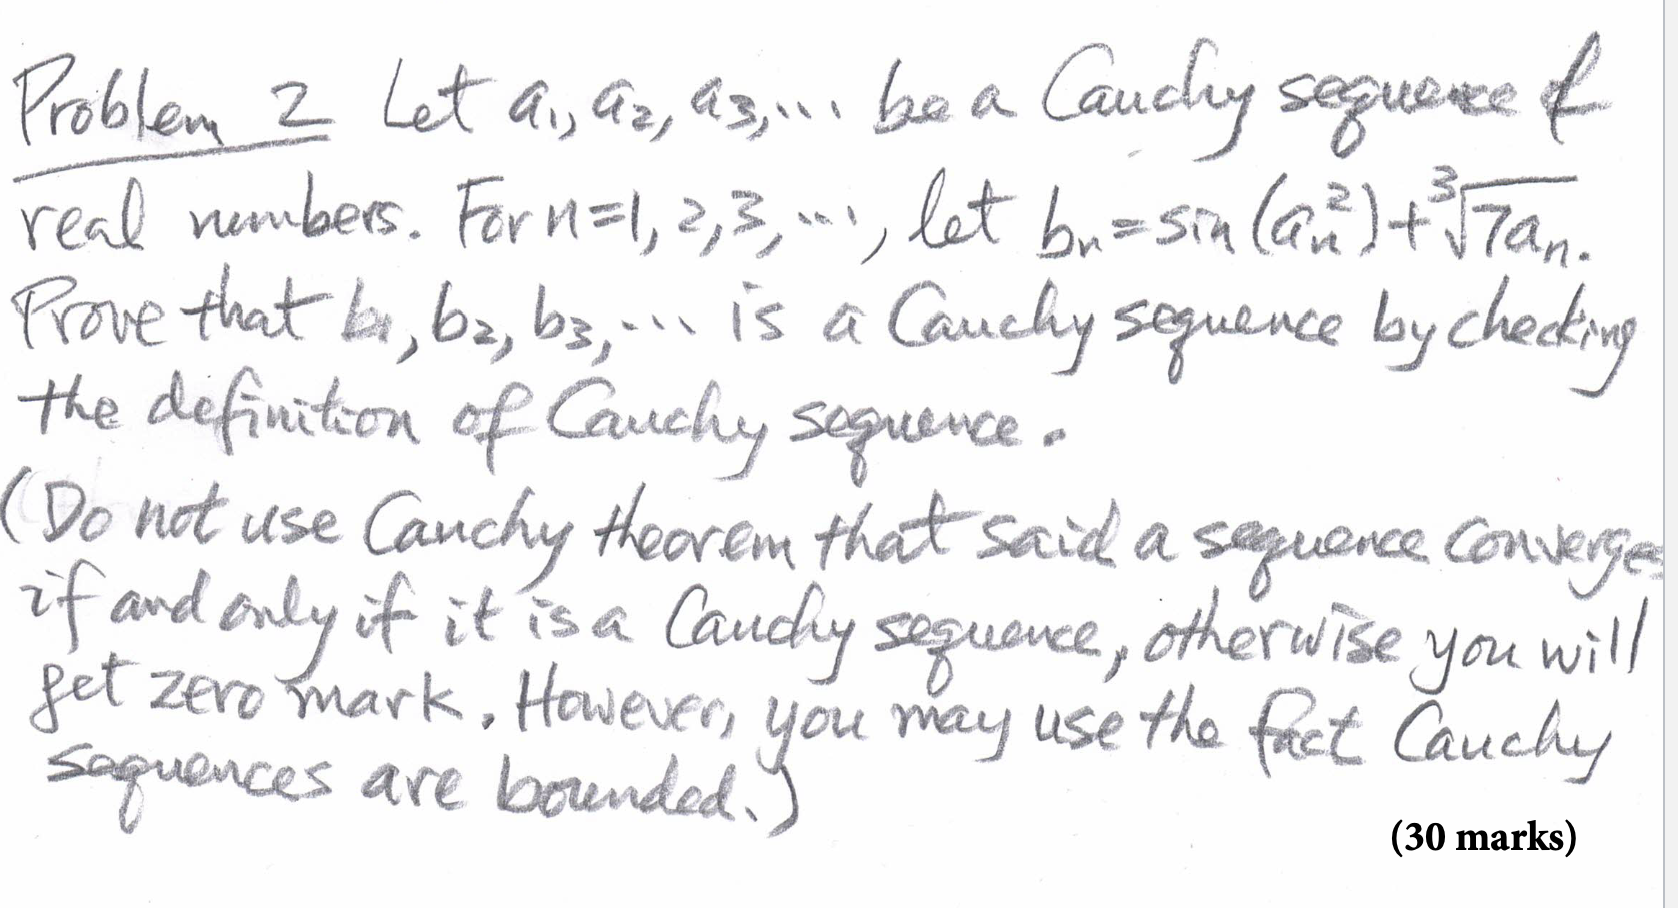 Problem 2 Let a₁, a₂, a₃,... be a Cauchy sequence of
real numbers. For n=1, 2, 3, ..., let bₙ=sin(aₙ²)+∛7aₙ.
Prove that b₁, b₂, b₃,... is a Cauchy sequence by checking
the definition of Cauchy sequence.
(Do not use Cauchy theorem that said a sequence converges
if and only if it is a Cauchy sequence, otherwise you will
get zero mark. However, you may use the fact Cauchy
sequences are bounded.)
(30 marks)